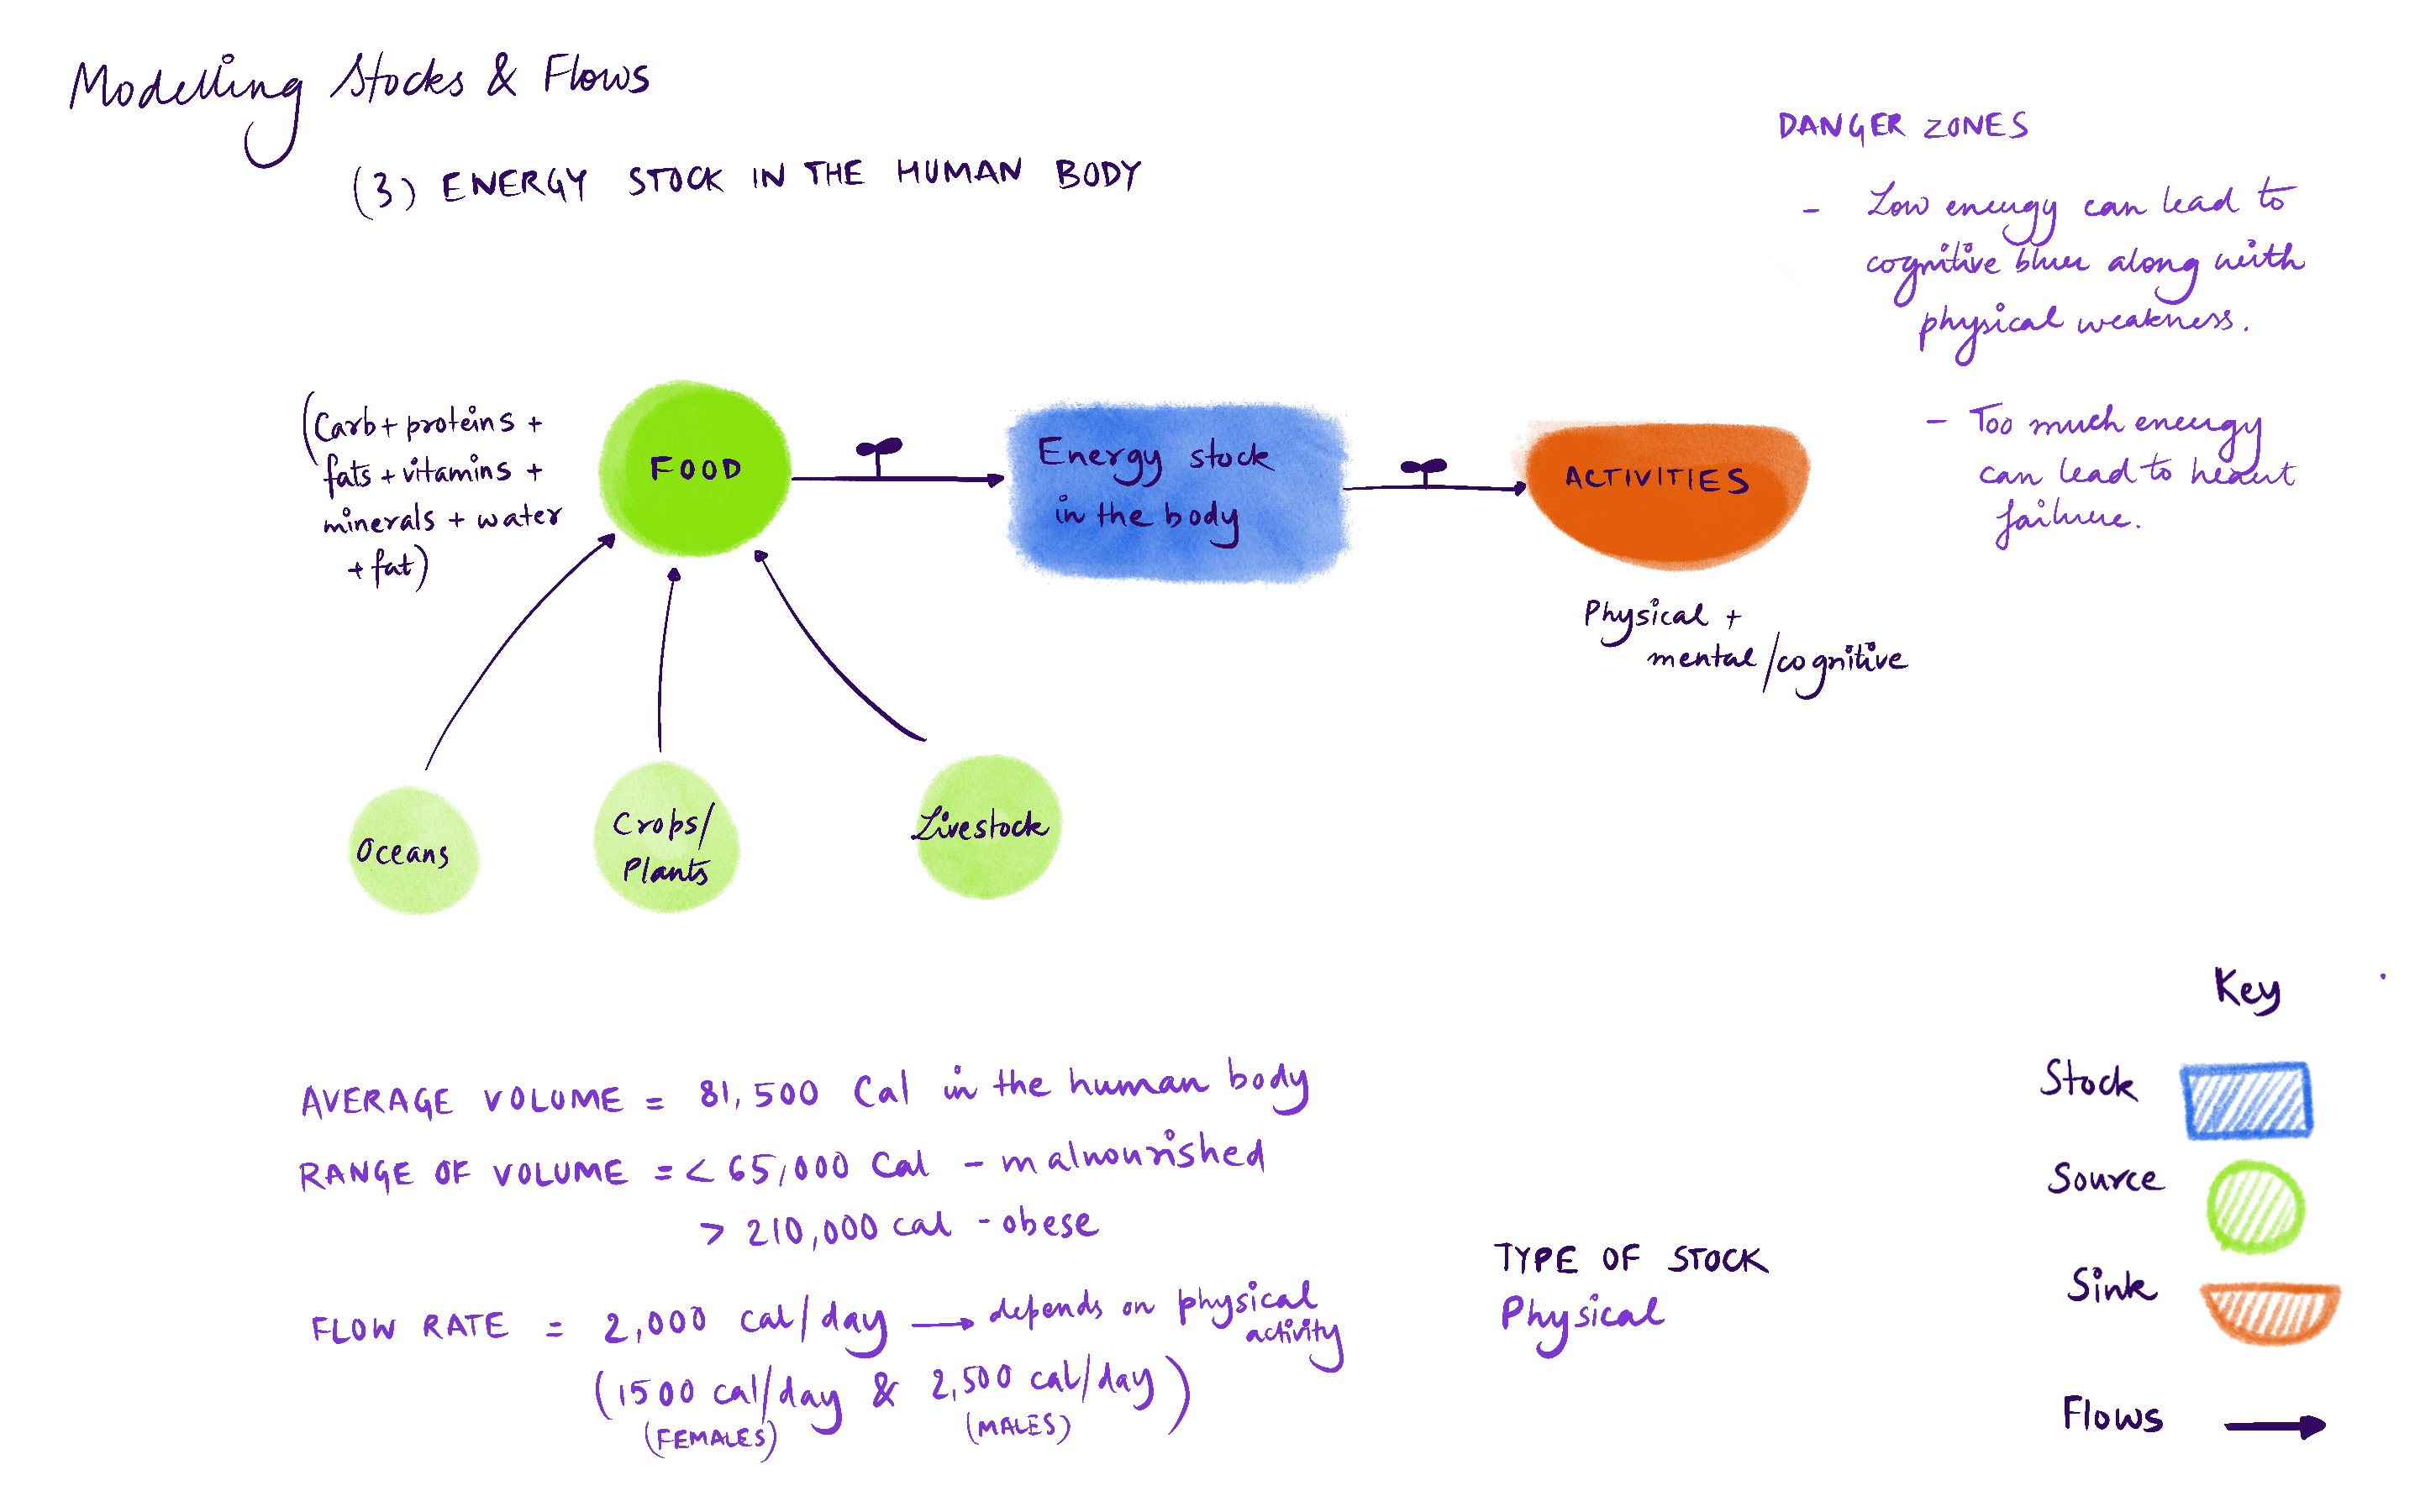 Modelling Stocks & Flows
(3) ENERGY STOCK IN THE HUMAN BODY
DANGER ZONES
- Low energy can lead to
cognitive blur along with
physical weakness.
- Too much energy
can lead to heart
failure.
(Carb + proteins +
fats + vitamins +
minerals + water
+ fat)
FOOD
Energy stock
in the body
ACTIVITIES
Physical +
mental/cognitive
Oceans
Crops/
Plants
Livestock
AVERAGE VOLUME = 81,500 Cal in the human body
RANGE OF VOLUME = < 65,000 Cal - malnourished
> 210,000 cal - obese
FLOW RATE = 2,000 cal/day → depends on physical
activity
(1500 cal/day & 2,500 cal/day)
(FEMALES) (MALES)
TYPE OF STOCK
Physical
Key
Stock
Source
Sink
Flows